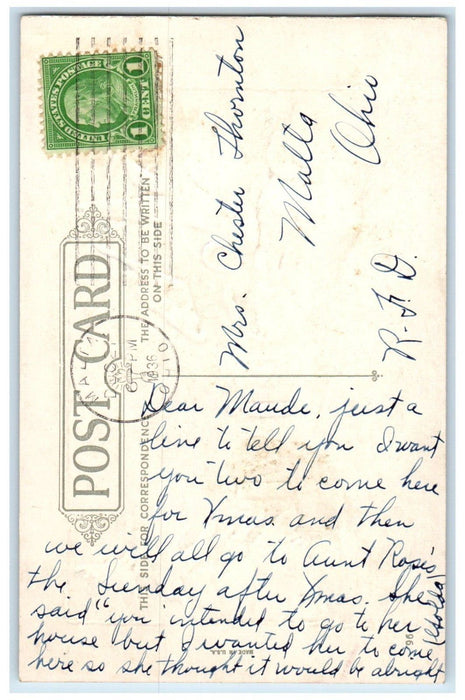 UNITED STATES POSTAGE
1 CENT 1
POST CARD
THE ADDRESS TO BE WRITTEN
ON THIS SIDE
THIS SIDE FOR CORRESPONDENCE
PM
1936
OHIO
Mrs. Chester Thornton
Malta
Ohio
R. F. D.
Dear Maude, just a
line to tell you I want
you two to come here
for Xmas and then
we will all go to Aunt Rose's
the Sunday after Xmas. She
said "you intended to go to her
house but I wanted her to come
here so she thought it would be alright
MADE IN U.S.A.